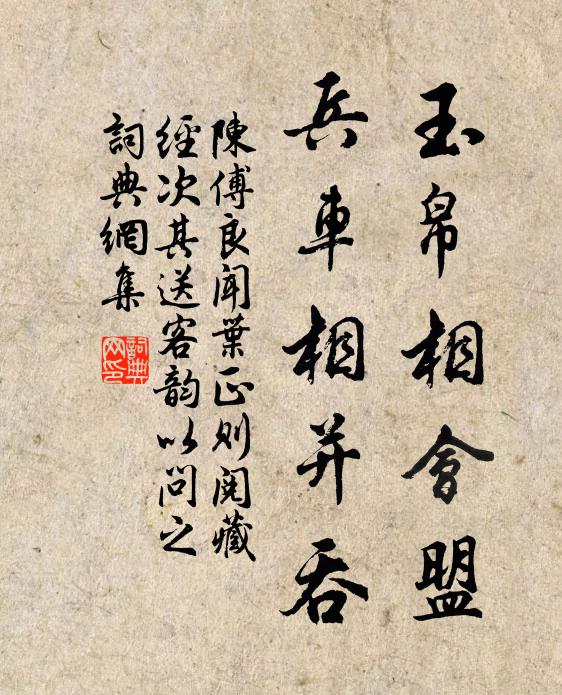 玉帛相會盟
兵車相并吞
陳傅良聞葉正則閱藏
經次其送客韵以問之
詞典網集
詞典网印